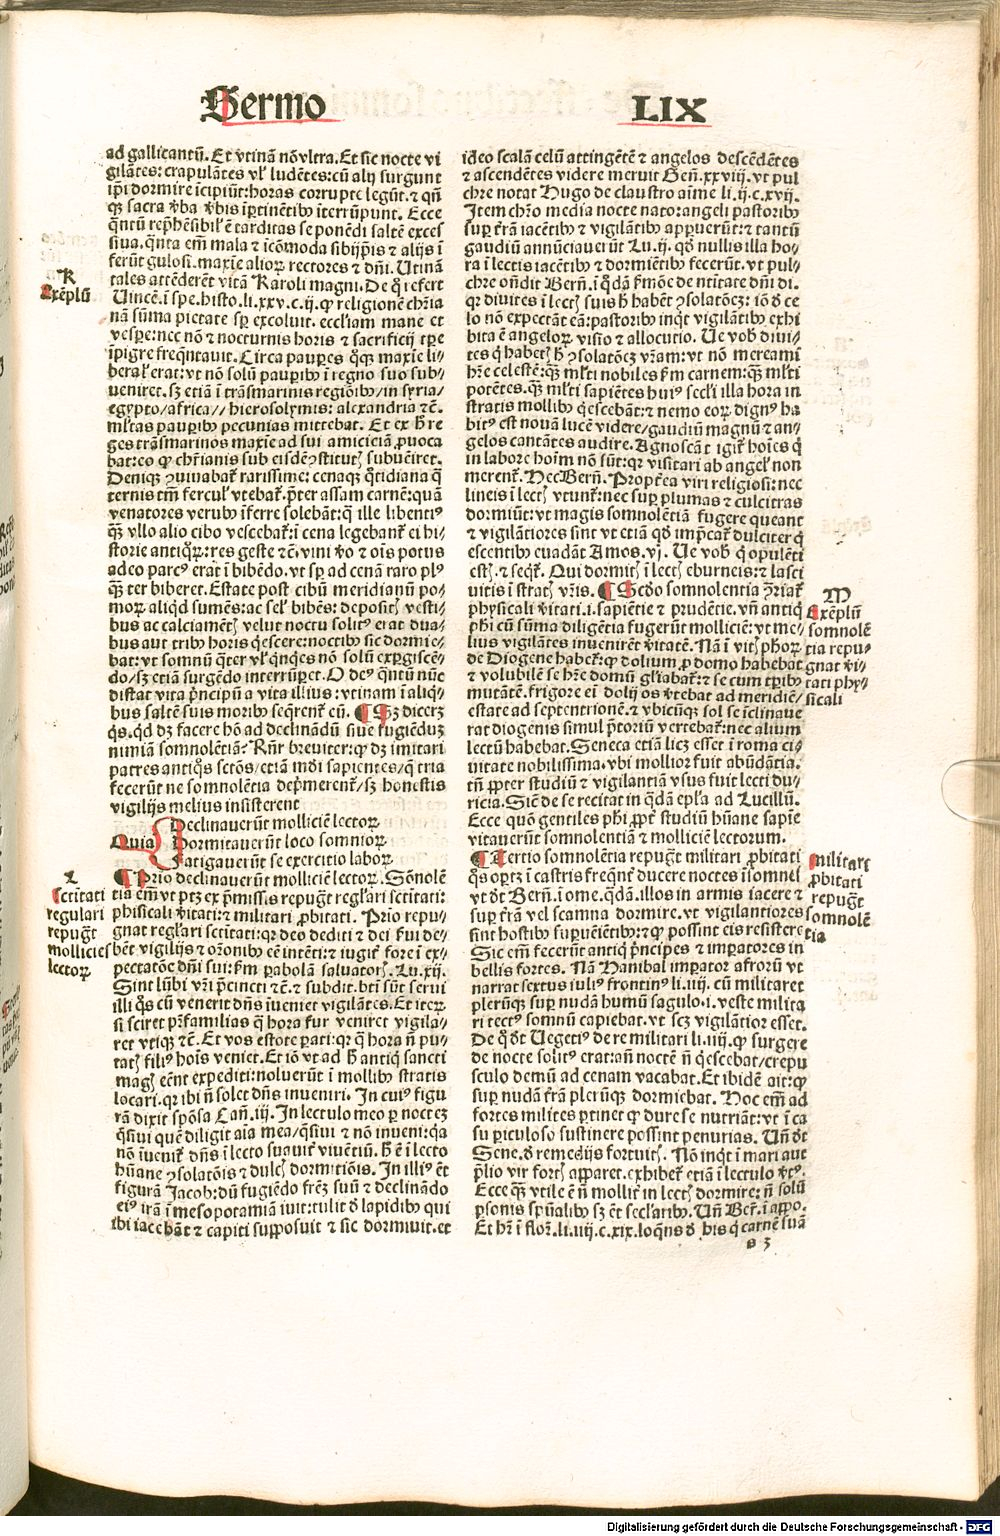 Sermo LIX
ad gallicantū. Et vtinā nō vltra. Et sic nocte vi
gilātes: crapulātes vł ludētes: cū alij surgunt
ip̄i dormire īcipiūt: horas corrupte legūt. ⁊ qn̄
qꝫ sacra v̄ba v̄bis īp̱tinētibꝰ īterrūpunt. Ecce
q̄ntū rep̄hēsibił ē tarditas se ponēdi saltē exces
siua. q̄nta em̄ mala ⁊ icōmoda sibijp̄is ⁊ alijs ī
ferūt gulosi. maxīe alioꝝ rectores ⁊ dn̄i. Utinā
tales attēderēt vitā Karoli magni. De q̊ refert
Uincē. ī spe. histo. li. xxv. c. ij. ꝙ religionē chr̄ia
nā sūma pietate sp̱ excoluit. eccłiam mane et
vesp̱e: nec nō ⁊ nocturnis horis ⁊ sacrificij tp̱e
īpigre freq̄ntauit. Circa paup̱es q̊qꝫ maxīe li-
berał erat: vt nō solū paup̱ibꝰ ī regno suo sub/
ueniret. sꝫ etiā ī trāsmarinis regiōibꝰ/ in syria/
egypto/africa// hierosolymis: alexandria ⁊c̄.
młtas paup̱ibꝰ pecunias mittebat. Et ex h̄ re
ges trāsmarinos maxīe ad sui amiciciā ꝓuoca
bat: eo ꝙ chr̄ianis sub eisdē ꝯstitutꝭ subueīret.
Deniqꝫ ꝯuiuabat᷑ rarissime: cenaqꝫ q̊tidiana q̄
ternis tm̄ fercuł vtebat᷑. p̄ter assam carnē: quā
venatores verubꝰ īferre solebāt: q̄ ille libentiꝰ
q̄ꝫ vllo alio cibo vescebat᷑: ī cena legebant᷑ ei hi-
storie antiq̊ꝝ: res geste ⁊c̄. vini v̄o ⁊ oīs potus
adeo parcꝰ erat ī bibēdo. vt sp̱ ad cenā raro plꝰ
q̄ꝫ ter biberet. Estate post cibū meridianū po-
moꝝ aliqd sumēs: ac seł bibēs: depositꝭ vesti-
bus ac calciamētꝭ velut noctu solitꝰ erat dua-
bus aut tribꝰ horis q̊escere: noctibꝰ sic dormie-
bat: vt somnū q̊ter vł q̊nq̊es nō solū exp̱giscē-
do/sꝫ etiā surgēdo interrūp̱et. O deꝰ q̄ntū nūc
distat vita p̄ncipū a vita illius: vtinam ī aliq̊-
bus saltē suis moribꝰ seq̄rent᷑ eū. ¶ Sꝫ diceꝝ
q̊s. qd dꝫ facere hō ad declinādū siue fugiēduꝫ
nimiā somnolētiā? Rn̄r breuiter: ꝙ dꝫ imitari
patres antiq̊s sctōs/etiā mūdi sapientes/q̄ tria
fecerūt ne somnolētia dep̄merent᷑/sꝫ honestis
vigilijs melius insisterent
Declinauerūt molliciē lectoꝝ.
Quia Dormitauerūt loco somnioꝝ
Fatigauerūt se exercitio laboꝝ
¶ Prīo declinauerūt molliciē lectoꝝ. Sōnolē
tia em̄ vt ptꝫ ex p̄missis repugt᷑ regłari sctitati:
phisicali v̄itati: ⁊ militari ꝓbitati. Prīo repu-
gnat regłari sctitati: qꝛ deo dediti ⁊ dei s̄ui de-
bēt vigilijs ⁊ orōnibꝰ eē intēti: ⁊ iugit᷑ fore ī ex-
pectatōe dn̄i sui: s̄m parabolā saluatorꝭ. Lu. xij.
Sint lūbi vr̄i p̄cincti ⁊c̄. ⁊ subdit. bt̄i sūt serui
illi q̊s cū venerit dn̄s īuenīet vigilātes. Et iteꝝ.
si sciret pr̄familias q̄ hora fur veniret vigila-
ret vtiqꝫ ⁊c̄. Et vos estote parati: qꝛ q̄ hora n̄ pu-
tatꝭ filiꝰ hoīs veniet. Et iō vt ad h̄ antiq̊ sancti
magꝭ eēnt expediti: noluerūt ī mollibꝰ stratis
locari. qꝛ ibi n̄ solet dn̄s inueniri. In cuiꝰ figu
rā dixit spōsa Can̄. iij. In lectulo meo p̱ noctes
q̄siui quē diligit aīa mea/q̄siui ⁊ nō inueni: q̄a
nō īuenit᷑ dn̄s ī lecto suauit᷑ viuētiū. h̄ ē ī lecto
hūane ꝯsolatōis ⁊ dulcꝭ dormitiōis. In illiꝰ ēt
figurā Jacob: dū fugiēdo fr̄eꝫ suū ⁊ declinādo
eiꝰ irā ī mesopotamiā iuit: tulit d̄ lapidibꝰ qui
ibi iacebāt ⁊ capiti supposuit ⁊ sic dormiuit. et
K
Exēplū
L
Sctitati
regulari
repugt᷑
mollicies
lectoꝝ
ideo scalā celū attingētē ⁊ angelos descēdētes
⁊ ascendētes videre meruit Gen̄. xxviij. vt pul
chre notat Hugo de claustro aīme li. ij. c. xvij.
Item chr̄o media nocte nato: angeli pastoribꝰ
sup̱ t̄rā iacētibꝰ ⁊ vigilātibꝰ apparuerūt: ⁊ tantū
gaudiū annūciauerūt Lu. ij. qd̄ nullis illa ho/
ra ī lectis iacētibꝰ ⁊ dormiētibꝰ fecerūt. vt pul/
chre on̄dit Bern̄. ī q̊dā s̄mōe de natiuitate dn̄i. di.
qꝛ diuites ī lectꝭ suis h̄ habēt ꝯsolatōeꝫ: iō d̄ ce
lo nō expectāt eā: pastoribꝰ inqt vigilātibꝰ exhi
bita ē angeloꝝ visio ⁊ allocutio. Ue vob̄ diui/
tes q̊ habetꝭ h̄ ꝯsolatōeꝫ vr̄am: vt nō mereami
hr̄e celestē: q̄ꝫ młti nobiles s̄m carnem: q̄ꝫ młti
potētes. q̄ꝫ młti sapiētes huiꝰ secłi illa hora in
stratis mollibꝰ q̊escebāt: ⁊ nemo eoꝝ dignꝰ ha
bitꝰ est nouā lucē videre/gaudiū magnū ⁊ an-
gelos cantātes audire. Agnoscāt igit᷑ hoīes q̊
in labore hoīm nō sūt: qꝛ visitari ab angeł non
merent᷑. Hec Bern̄. Propt̄ea viri religiosi: nec
lineis ī lectꝭ vtunt᷑: nec sup̱ plumas ⁊ culcitras
dormiūt: vt magis somnolētiā fugere queant
⁊ vigilātiores sint vt etiā qd̄ imp̄cat᷑ dulciter q̊
escentibꝰ euadāt Amos. vj. Ue vob̄ q̊ opulēti
estꝭ. ⁊ seqt᷑. Qui dormitꝭ ī lectꝭ eburneis: ⁊ lasci
uitis ī stratꝭ vr̄is. ¶ Scd̄o somnolentia ꝯ̄riat᷑
physicali v̄itati. i. sapiētie ⁊ prudētie. vn̄ antiq̊
phi cū sūma diligētia fugerūt molliciē: vt me/
lius vigilātes inuenirēt v̄itatē. Nā ī vitꝭ phoꝝ
de Diogene habet᷑: ꝙ dolium ꝓ domo habebat
⁊ volubilē se hr̄e domū głiabat᷑: ⁊ se cum tp̱ibꝰ
mutātē. frigore ei̇ dolij os v̄tebat ad meridiē/
estate ad septentrionē. ⁊ vbicūqꝫ sol se īclinaue
rat diogenis simul p̄toriū vertebat᷑: nec alium
lectū habebat. Seneca etiā licꝫ esset ī roma ci/
uitate nobilissima. vbi mollioꝝ fuit abūdātia.
tn̄ ꝓpter studiū ⁊ vigilantiā vsus fuit lecti du/
ricia. Sic̄ de se recitat in q̊dā epła ad Lucillū.
Ecce quō gentiles phi ꝓpt᷑ studiū hūane sapīe
vitauerūt somnolentiā ⁊ molliciē lectorum.
¶ Tertio somnolētia repugt᷑ militari ꝓbitati
q̊s oportꝫ ī castris freq̄nt᷑ ducere noctes īsomneſ
vt dt̄ Bern̄. ī ome. q̊dā. illos in armis iacere ⁊
sup̱ t̄rā vel scamna dormire. vt vigilantiores
sint hostibꝰ sup̱ueiētibꝰ: ⁊ ꝙ possint eis resistere
Sic em̄ fecerūt antiq̊ p̄ncipes ⁊ imp̱atores in
bellis fortes. Nā Hanibal imp̱ator afroꝝ vt
narrat sextus iuliꝰ frontinꝰ li. iiij. cū militaret
plerūqꝫ sup̱ nudā humū sagulo. i. veste milita
ri tectꝰ somnū capiebat. vt scꝫ vigilātior esset.
De q̊ dt̄ Uegetiꝰ de re militari li. iiij. ꝙ surgere
de nocte solitꝰ erat: an̄ noctē n̄ q̊escebat/crepu
sculo demū ad cenam vacabat. Et ibidē ait: ꝙ
sup̱ nudā t̄rā plerūqꝫ dormiebat. Hoc em̄ ad
fortes milites p̱tinet ꝙ dure se nutriāt: vt ī ca
su p̱iculoso sustinere possint penurias. Un̄ dt̄
Sene. d̄ remedijs fortuitꝭ. Nō inqt ī mari aut
p̄lio vir fortꝭ apparet. exhibet᷑ etiā ī lectulo v̄tꝰ.
Ecce q̄ꝫ vtile ē n̄ mollit᷑ in lectꝭ dormire: n̄ solū
p̱sonis sp̄ualibꝰ sꝫ ēt secłaribꝰ. Un̄ Ber̄. ī appo.
Et hr̄ ī flor̄. li. iiij. c. xix. loq̄ns d̄ his q̊ carnē suā
s 3
M
Exēplū
somnolē
tia repu-
gnat v̄i-
tati phy-
sicali
militari
ꝓbitati
repugt᷑
somnolē
tia
Digitalisierung gefördert durch die Deutsche Forschungsgemeinschaft - DFG